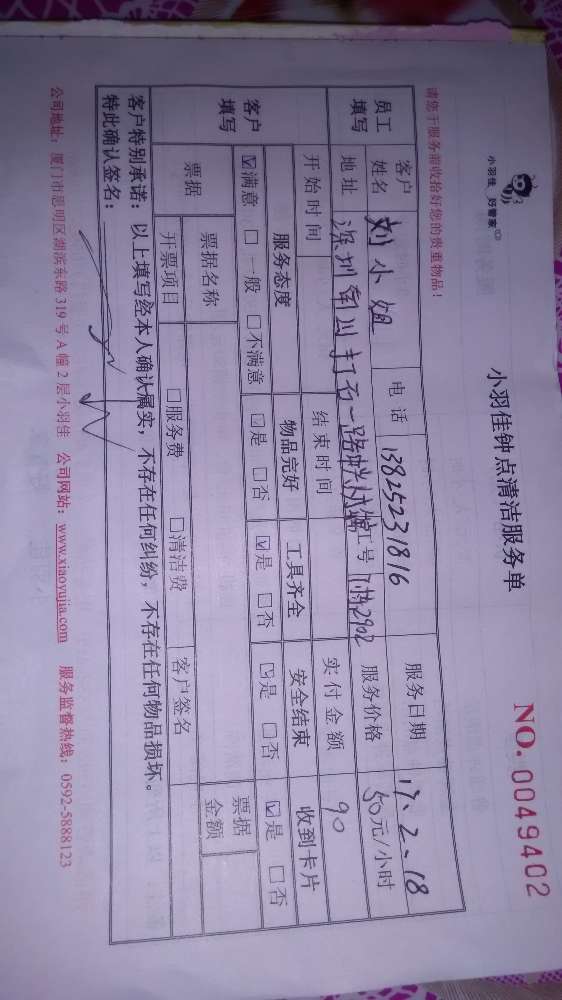 小羽佳 好管家
小羽佳钟点清洁服务单
NO. 0049402
请您于服务前收拾好您的贵重物品!
员工填写 客户姓名 刘小姐 电话 13825231816 服务日期 17、2、18
地址 深圳南山 打石一路 工号 服务价格 50元/小时
开始时间 结束时间 实付金额 90
客户填写 服务态度 物品完好 工具齐全 安全结束 收到卡片
☑满意 □一般 □不满意 ☑是 □否 ☑是 □否 ☑是 □否 ☑是 □否
票据 票据名称 票据金额
开票项目 □服务费 □清洁费 客户签名
客户特别承诺:以上填写经本人确认属实,不存在任何纠纷,不存在任何物品损坏。
特此确认签名:
公司地址:厦门市思明区湖滨东路 319 号 A 幢 2 层小羽佳 公司网站:www.xiaoyujia.com 服务监督热线:0592-5888123